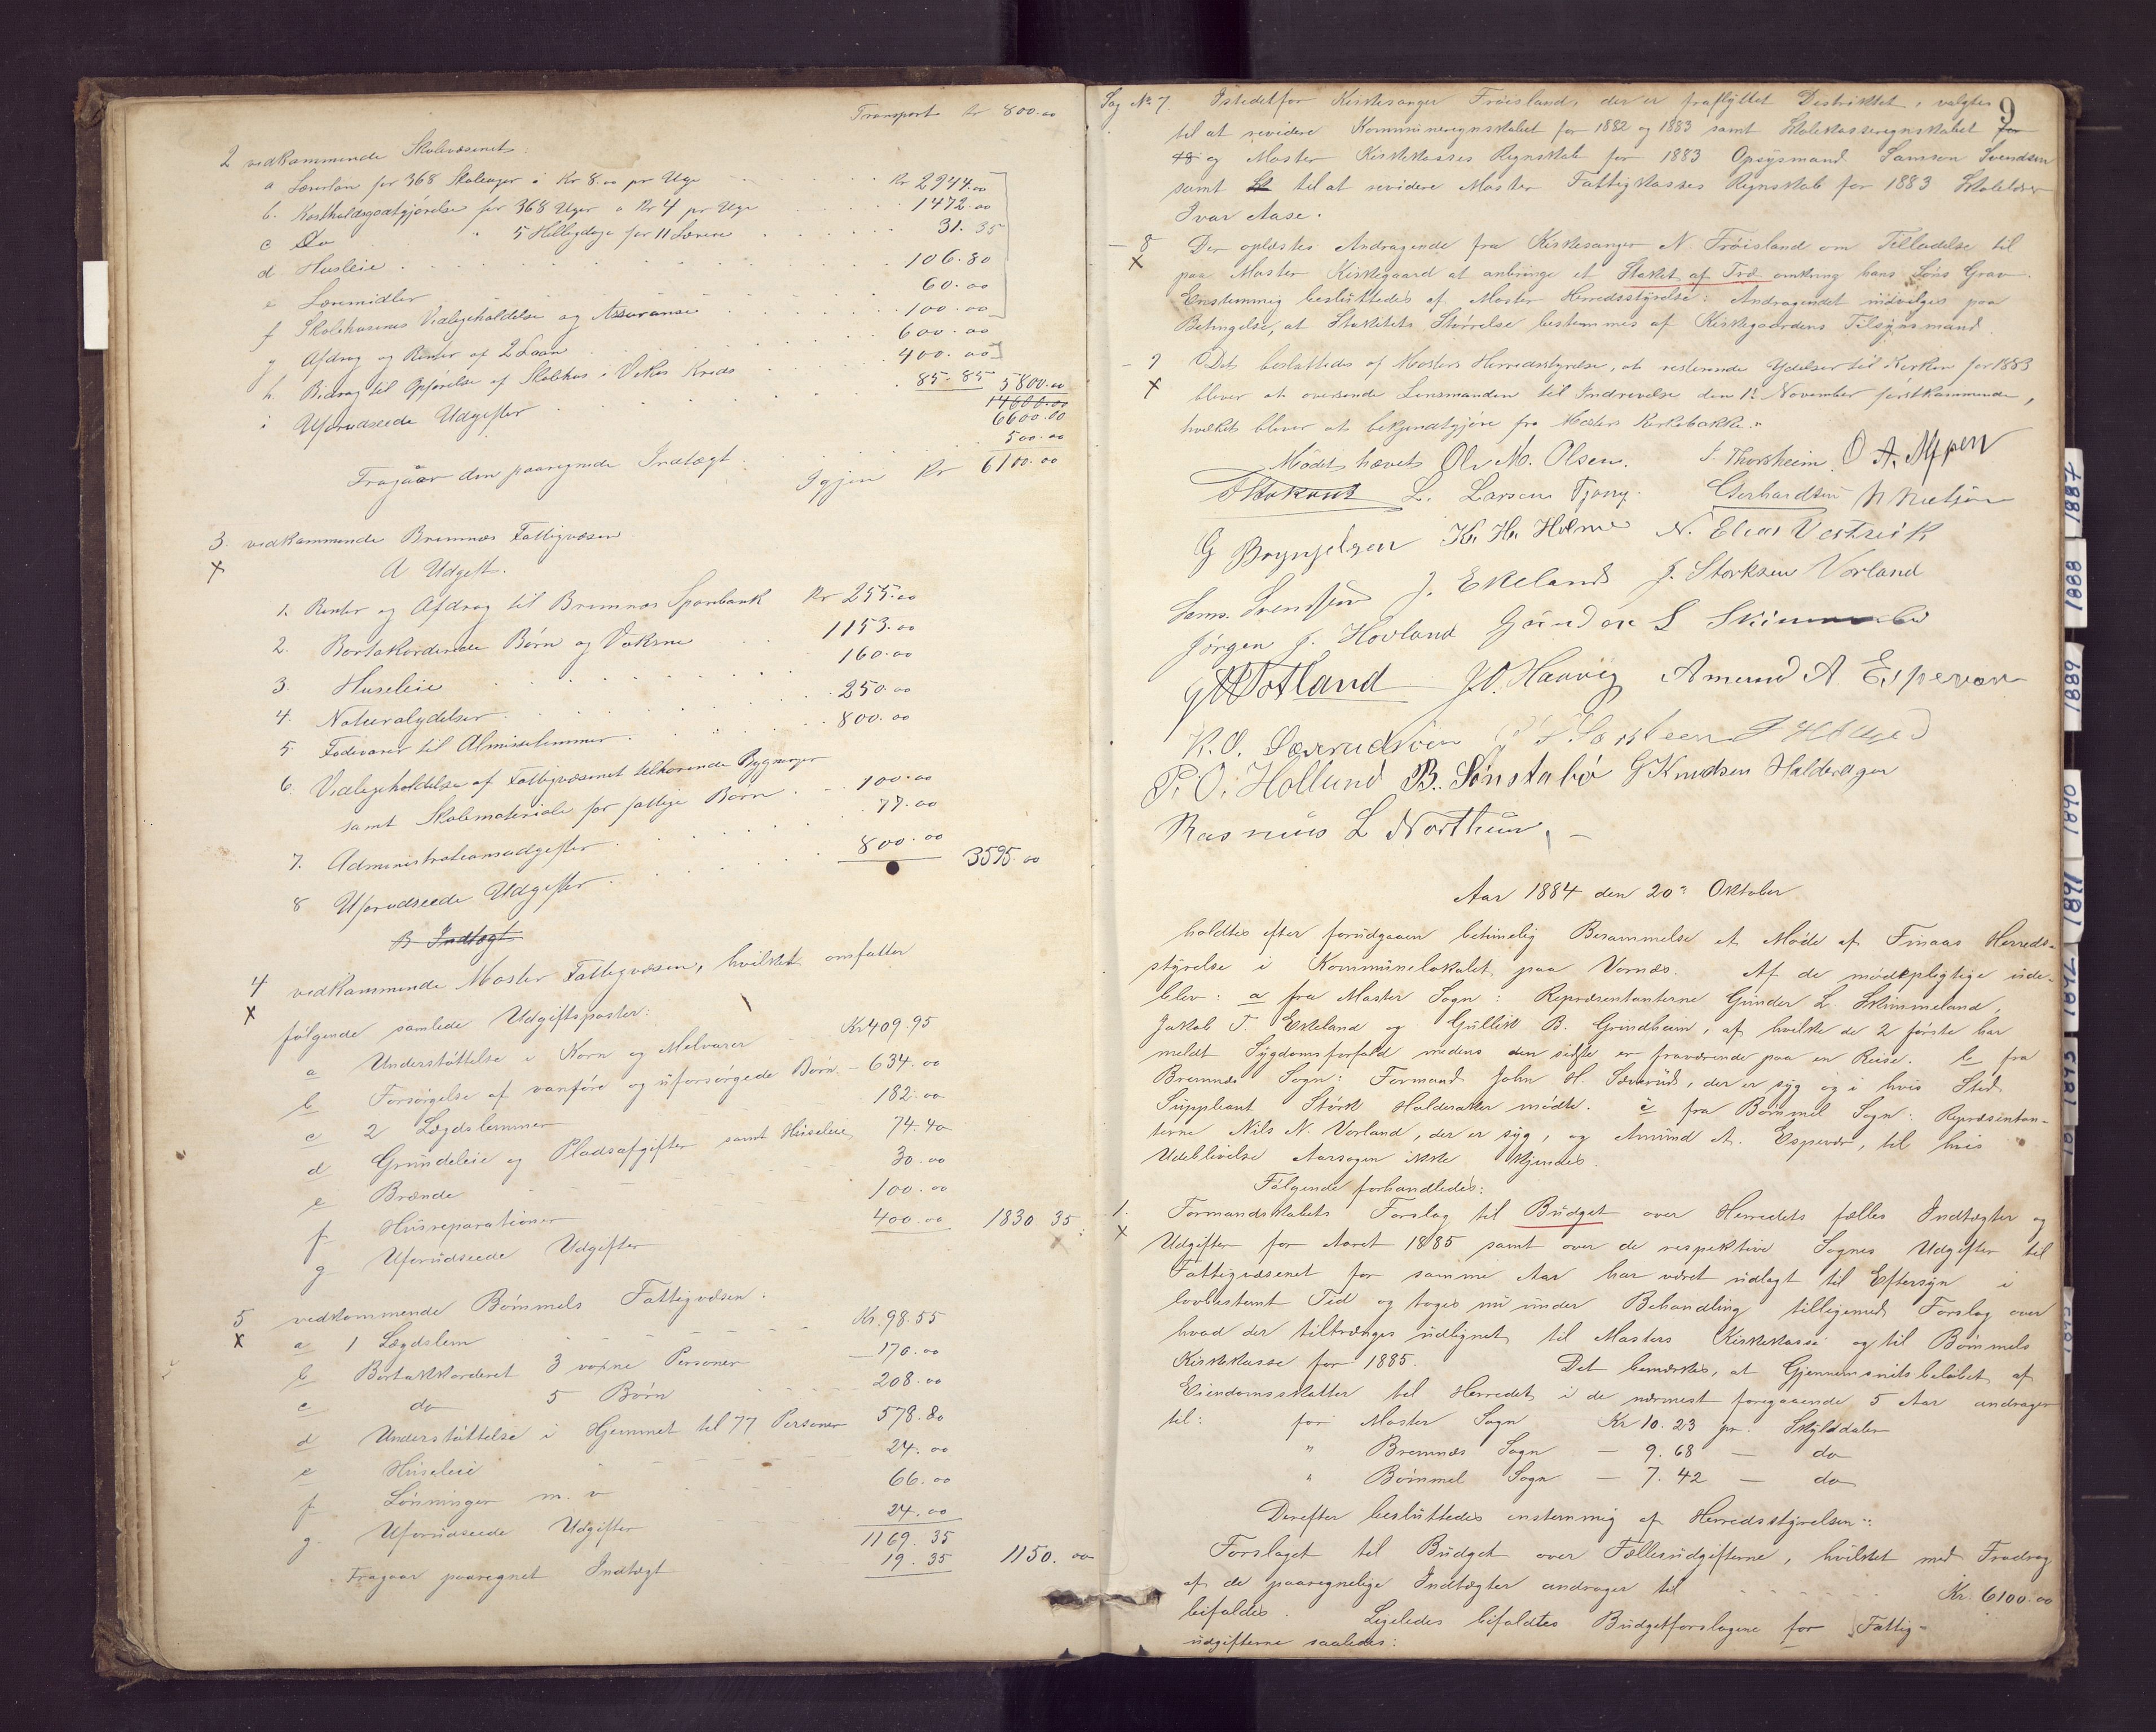 Transport Kr 800.00
2 vedkommende Skolevæsenet.
a Lærerløn for 368 Skoleuger á Kr 8.00 pr Uge Kr 2944.00
b. Kostholdsgodtgjørelse for 368 Uger a Kr 4 pr Uge 1472.00
c Do " 5 Helligdage for 11 Lærere 31.35
d Husleie 106.80
e Læremidler 60.00
f Skolehusenes Vedligeholdelse og Assuranse 100.00
g Afdrag og Renter af 2 Laan 600.00
h. Bidrag til Opførelse af Skolehus i Vikes Kreds 400.00
i Uforudseede Udgifter 85.85 5800.00
14600.00
6600.00
Fragaar den paaregnede Indtægt 500.00
Igjen Kr 6100.00
3. vedkommende Bremnæs Fattigvæsen
X
A Udgift.
1. Renter og Afdrag til Bremnæs Sparebank Kr 255.00
2. Bortakorderede Børn og Voksne 1153.00
3. Husleie 160.00
4. Naturalydelser 250.00
5. Fødevarer til Almisselemmer 800.00
6. Vedligeholdelse af Fattigvæsenet tilhørende Bygninger
samt Skolemateriale for fattige Børn 100.00
7. Administrationsudgifter 77.00
8 Uforudseede Udgifter 800.00 3595.00
B Indtægt
4 vedkommende Moster Fattigvæsen, hvilket omfatter
X
følgende samlede Udgiftsposter:
a Understøttelse i Korn og Melvarer Kr 409.95
b Forsørgelse af vanføre og uforsørgede Børn - 634.00
c 2 Lægdslemmer 182.00
d Grundeleie og Pladsafgifter samt Huseleie 74.40
e Brænde 30.00
f Husreparationer 100.00
g Uforudseede Udgifter 400.00 1830 35
5 vedkommende Bømmels Fattigvæsen.
X
a 1 Lægdslem Kr. 98.55
b Bortakkorderet 3 voxne Personer — 170.00
c do 5 Børn 208.00
d Understøttelse i Hjemmet til 77 Personer 578.80
e Huseleie 24.00
f Lønninger m. v 66.00
g. Uforudseede Udgifter 24.00
1169.35
Fragaar paaregnet Indtægt 19.35 1150.00
9
Sag No 7. Istedetfor Kirkesanger Frøisland, der er fraflyttet Distriktet, valgtes
til at revidere Kommuneregnskabet for 1882 og 1883 samt Skolekasseregnskabet for
18 og Moster Kirkekasses Regnskab for 1883 Opsynsmand Samson Svendsen
samt til at revidere Moster Fattigkasses Regnskab for 1883 Skolelærer
Ivar Aase.
— 8 Der oplæstes Andragende fra Kirkesanger N. Frøisland om Tilladelse til
X
paa Moster Kirkegaard at anbringe et Staket af Træ omkring hans Søns Grav.
Enstemmig besluttedes af Moster Herredsstyrelse: Andragendet indvilges paa
Betingelse, at Stakitets Størrelse bestemmes af Kirkegaardens Tilsynsmand.
— 9 Det besluttedes af Mosters Herredsstyrelse, at resterende Ydelser til Kirken for 1883
X
bliver at oversende Lensmanden til Indrivelse den 1ste November førstkommende,
hvilket bliver at bekjendtgjøre fra Mosters Kirkebakke."
Mødet hævet. Ole M. Olsen. S. Thorsheim O A. Alfsen
L. Larsen Tjong. Gerhardsen
G Brynjelsen K. H. Holme N. Elias Vestvik
Sams. Svendsen J. Ekeland J. Storksen Vorland
Jørgen J. Hovland Gunder L Skimmeland
Totland J O. Haavig Amund A. Espevær
K. O.
P. O. Hollund B. Sønstabø G Knudsen Halderager
Rasmus L Northun
Aar 1884 den 20de Oktober
holdtes efter forudgaaen betimelig Berammelse et Møde af Finaas Herreds-
styrelse i Kommunelokalet paa Vornæs. Af de mødepligtige ude-
blev: a fra Moster Sogn: Repræsentanterne Gunder L. Skimmeland,
Jakob T. Ekeland og Gullik B. Grindheim, af hvilke de 2 første har
meldt Sygdomsforfald medens den sidste er fraværende paa en Reise. b fra
Bremnæs Sogn: Formand John H. Særvrud, der er syg og i hvis Sted
Suppleant Størk Halderaker mødte. c fra Bømmel Sogn: Repræsentan-
terne Nils N. Vorland, der er syg, og Amund A. Espevær, til hvis
Udeblivelse Aarsagen ikke kjendes.
Følgende forhandledes:
1. Formandskabets Forslag til Budget over Herredets fælles Indtægter og
X
Udgifter for Aaret 1885 samt over de respektive Sognes Udgifter til
Fattigvæsenet for samme Aar har været udlagt til Eftersyn i
lovbestemt Tid og toges nu under Behandling tilligemed Forslag over
hvad der tiltrænges udlignet til Mosters Kirkekasse og til Bømmels
Kirkekasse for 1885. Det bemærkes, at Gjennemsnitsbeløbet af
Eiendomsskatter til Herredet i de nærmest foregaaende 5 Aar andrager
til: for Moster Sogn Kr 10.23 pr. Skylddaler
" Bremnæs Sogn — 9.68 — do
" Bømmel Sogn — 7.42 — do
Derefter besluttedes enstemmig af Herredsstyrelsen:
Forslaget til Budget over Fællesudgifterne, hvilket med Fradrag
af de paaregnelige Indtægter andrager til Kr. 6100.00
bifaldes. Ligeledes bifaldtes Budgetforslagene for Fattig-
udgifterne saaledes:
1887
1888
1889
1890
1891
1892
1893